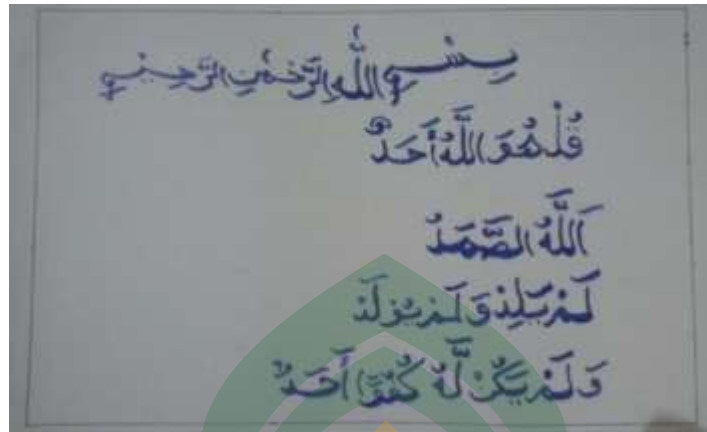 بِسْمِ اللَّهِ الرَّحْمٰنِ الرَّحِيْمِ
قُلْ هُوَ اللَّهُ أَحَدٌ
اَللَّهُ الصَّمَدُ
لَمْ يَلِدْ وَلَمْ يُوْلَدْ
وَلَمْ يَكُنْ لَّهُ كُفُوًا أَحَدٌ